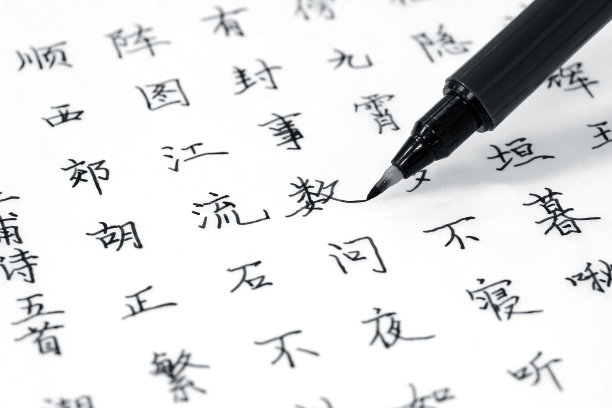 辉王
隐垣暮啾
停九霄不寝听
有封事数问夜如
阵图江流石不
顺西郊胡正繁湖
甫诗五首